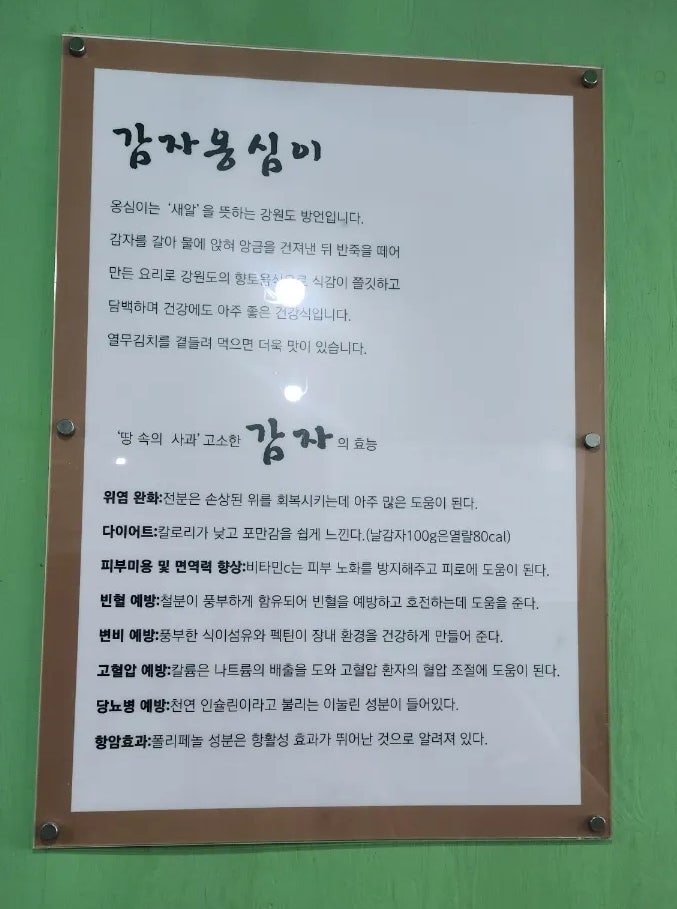 감자옹심이
옹심이는 '새알'을 뜻하는 강원도 방언입니다.
감자를 갈아 물에 앉혀 앙금을 건져낸 뒤 반죽을 떼어
만든 요리로 강원도의 향토음식으로 식감이 쫄깃하고
담백하며 건강에도 아주 좋은 건강식입니다.
열무김치를 곁들려 먹으면 더욱 맛이 있습니다.
'땅 속의 사과' 고소한 감자의 효능
위염 완화:전분은 손상된 위를 회복시키는데 아주 많은 도움이 된다.
다이어트:칼로리가 낮고 포만감을 쉽게 느낀다.(날감자100g은열량80cal)
피부미용 및 면역력 향상:비타민c는 피부 노화를 방지해주고 피로에 도움이 된다.
빈혈 예방:철분이 풍부하게 함유되어 빈혈을 예방하고 호전하는데 도움을 준다.
변비 예방:풍부한 식이섬유와 펙틴이 장내 환경을 건강하게 만들어 준다.
고혈압 예방:칼륨은 나트륨의 배출을 도와 고혈압 환자의 혈압 조절에 도움이 된다.
당뇨병 예방:천연 인슐린이라고 불리는 이눌린 성분이 들어있다.
항암효과:폴리페놀 성분은 항활성 효과가 뛰어난 것으로 알려져 있다.